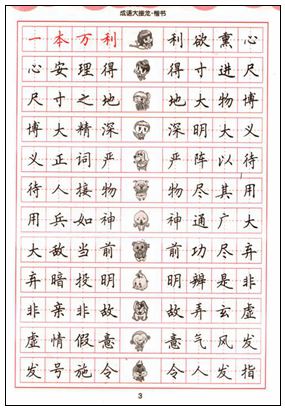 成语大接龙·楷书
一本万利 利欲熏心
心安理得 得寸进尺
尺寸之地 地大物博
博大精深 深明大义
义正词严 严阵以待
待人接物 物尽其用
用兵如神 神通广大
大敌当前 前功尽弃
弃暗投明 明辨是非
非亲非故 故弄玄虚
虚情假意 意气风发
发号施令 令人发指
3